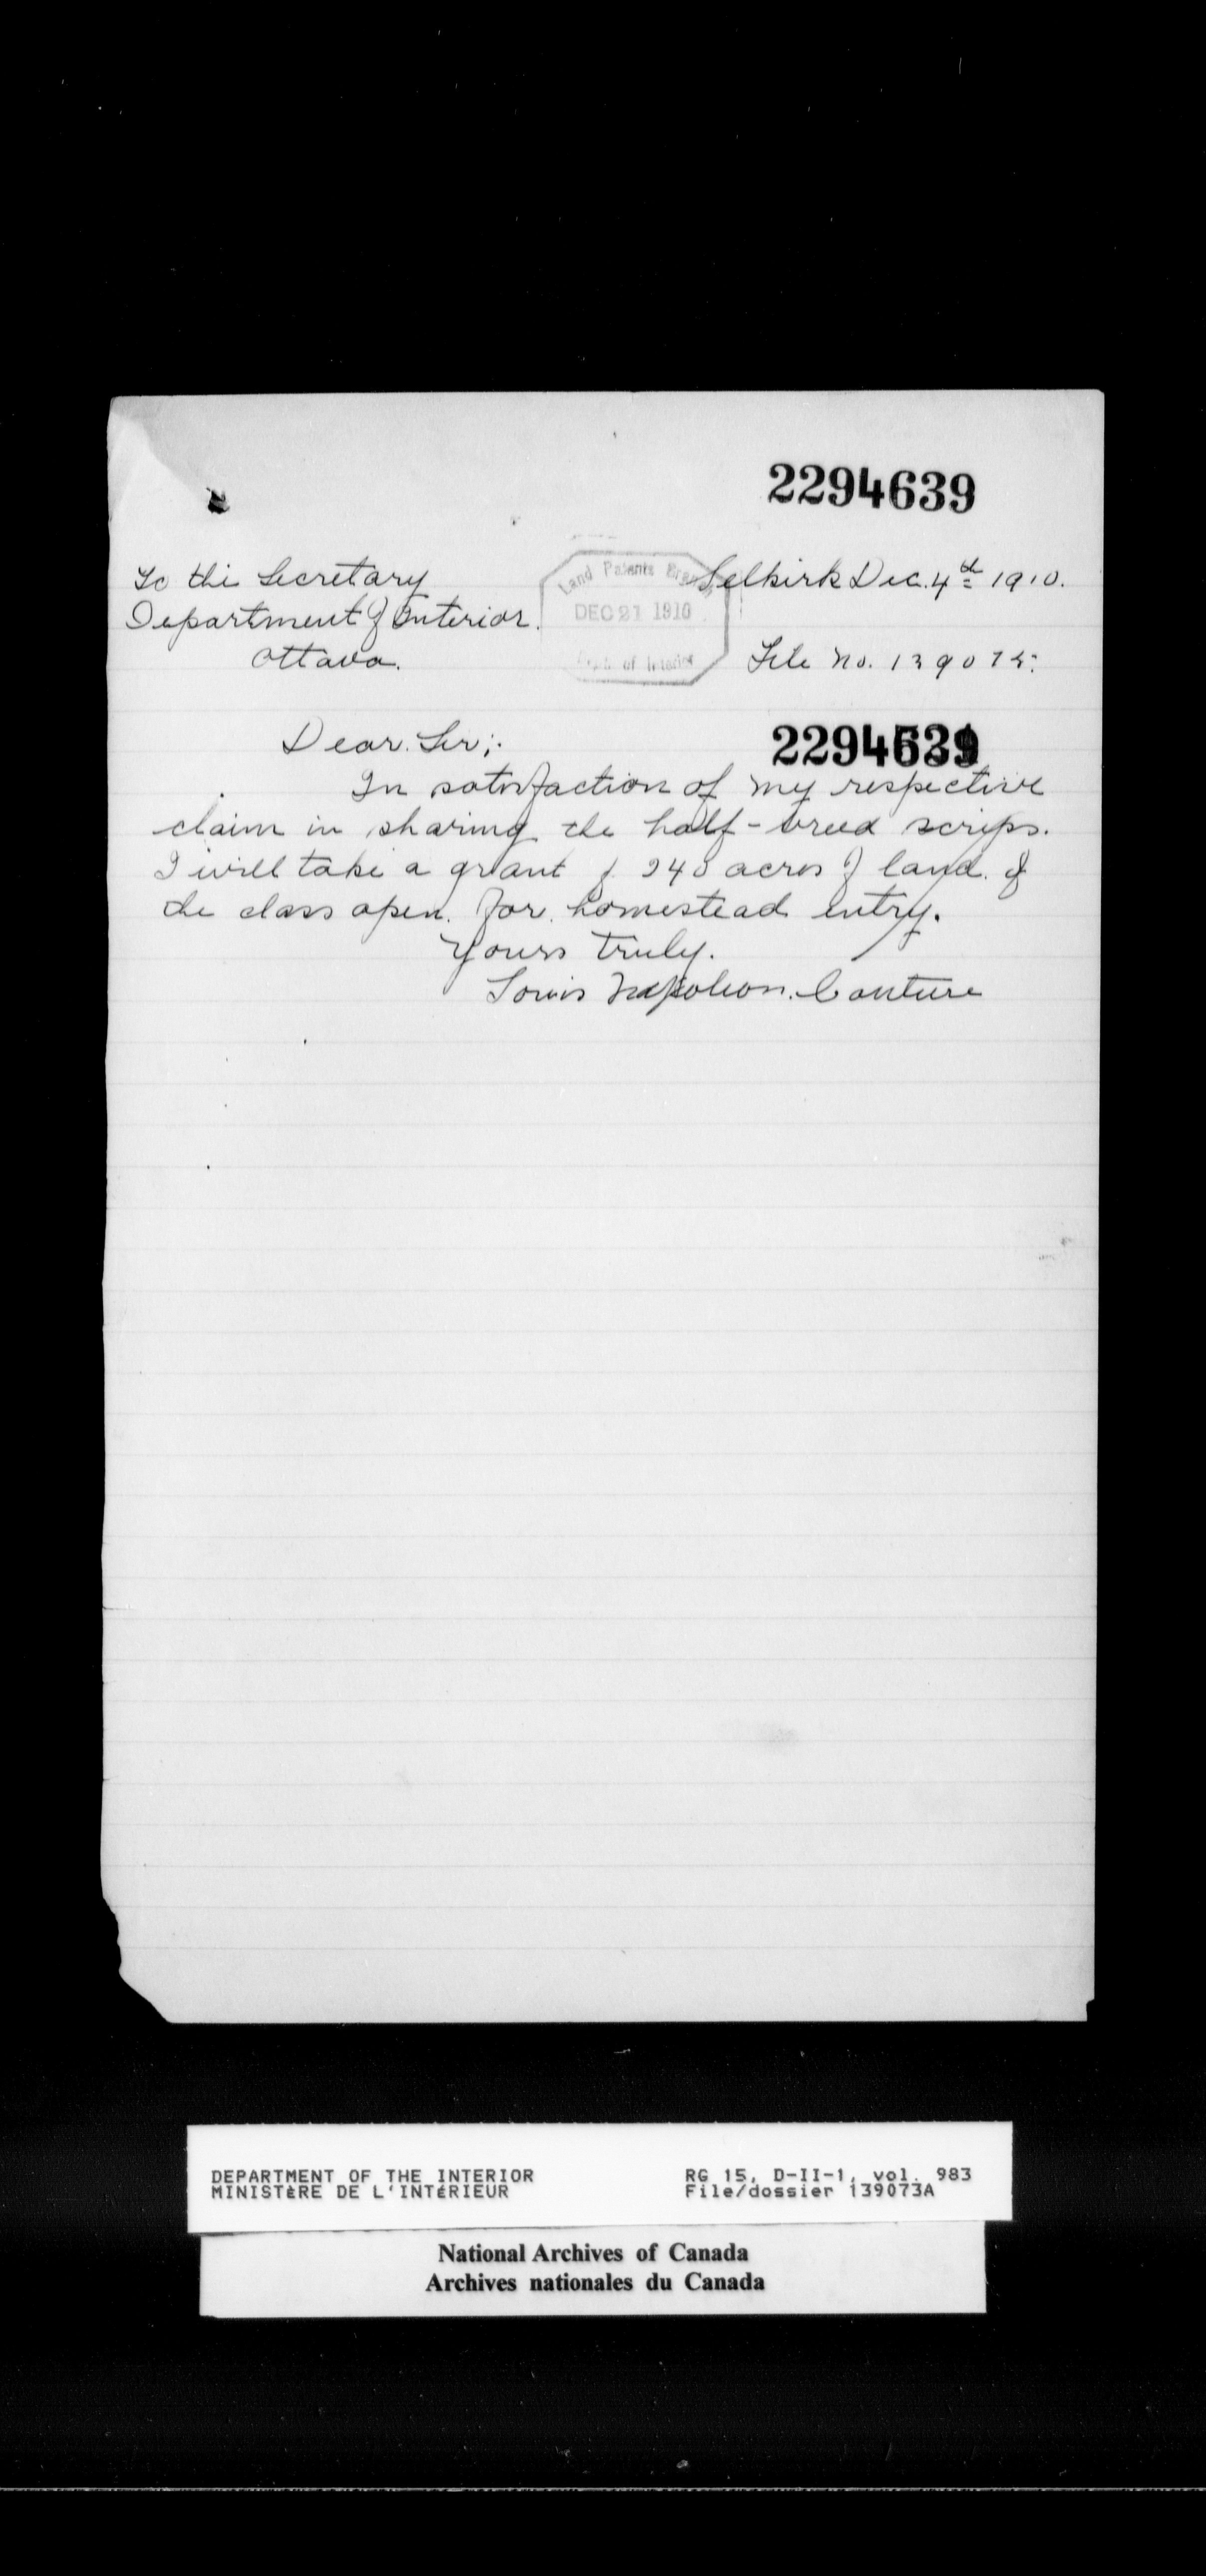 2294639
To the Secretary
Selkirk Dec. 4th 1910.
Department of Interior.
Ottawa.
Land Patents Branch
DEC 21 1910
Dept. of Interior
File No. 139073.
Dear Sir;.
229463
In satisfaction of my respective
claim in sharing the half-breed scrips.
I will take a grant of 240 acres of land of
the class open for homestead entry.
Yours truly.
Louis Napoleon Couture
DEPARTMENT OF THE INTERIOR
MINISTÈRE DE L'INTÉRIEUR
RG 15, D-II-1, vol. 983
File/dossier 139073A
National Archives of Canada
Archives nationales du Canada